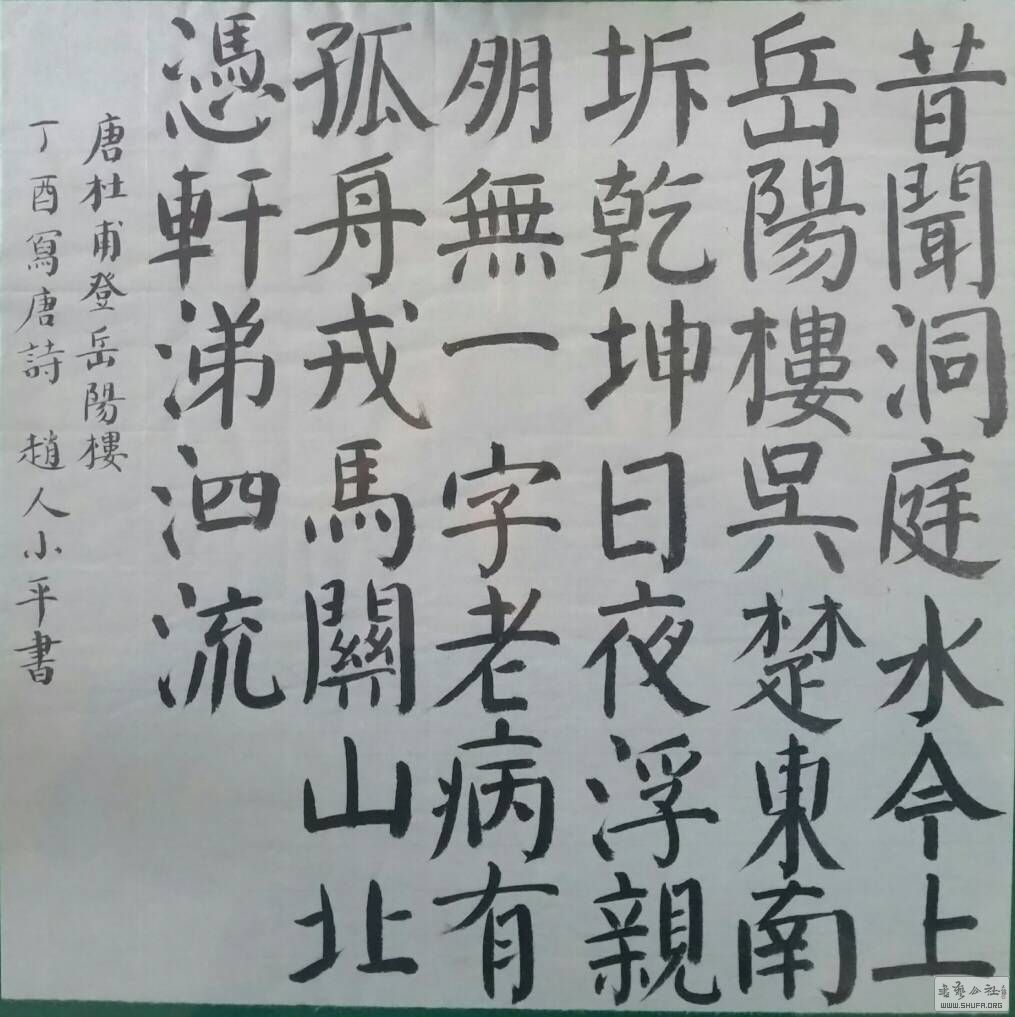 昔聞洞庭水今上
岳陽樓吳楚東南
坼乾坤日夜浮親
朋無一字老病有
孤舟戎馬關山北
憑軒涕泗流
唐杜甫登岳陽樓
丁酉寫唐詩 趙人小平書
書藝公社
WWW.SHUFA.ORG